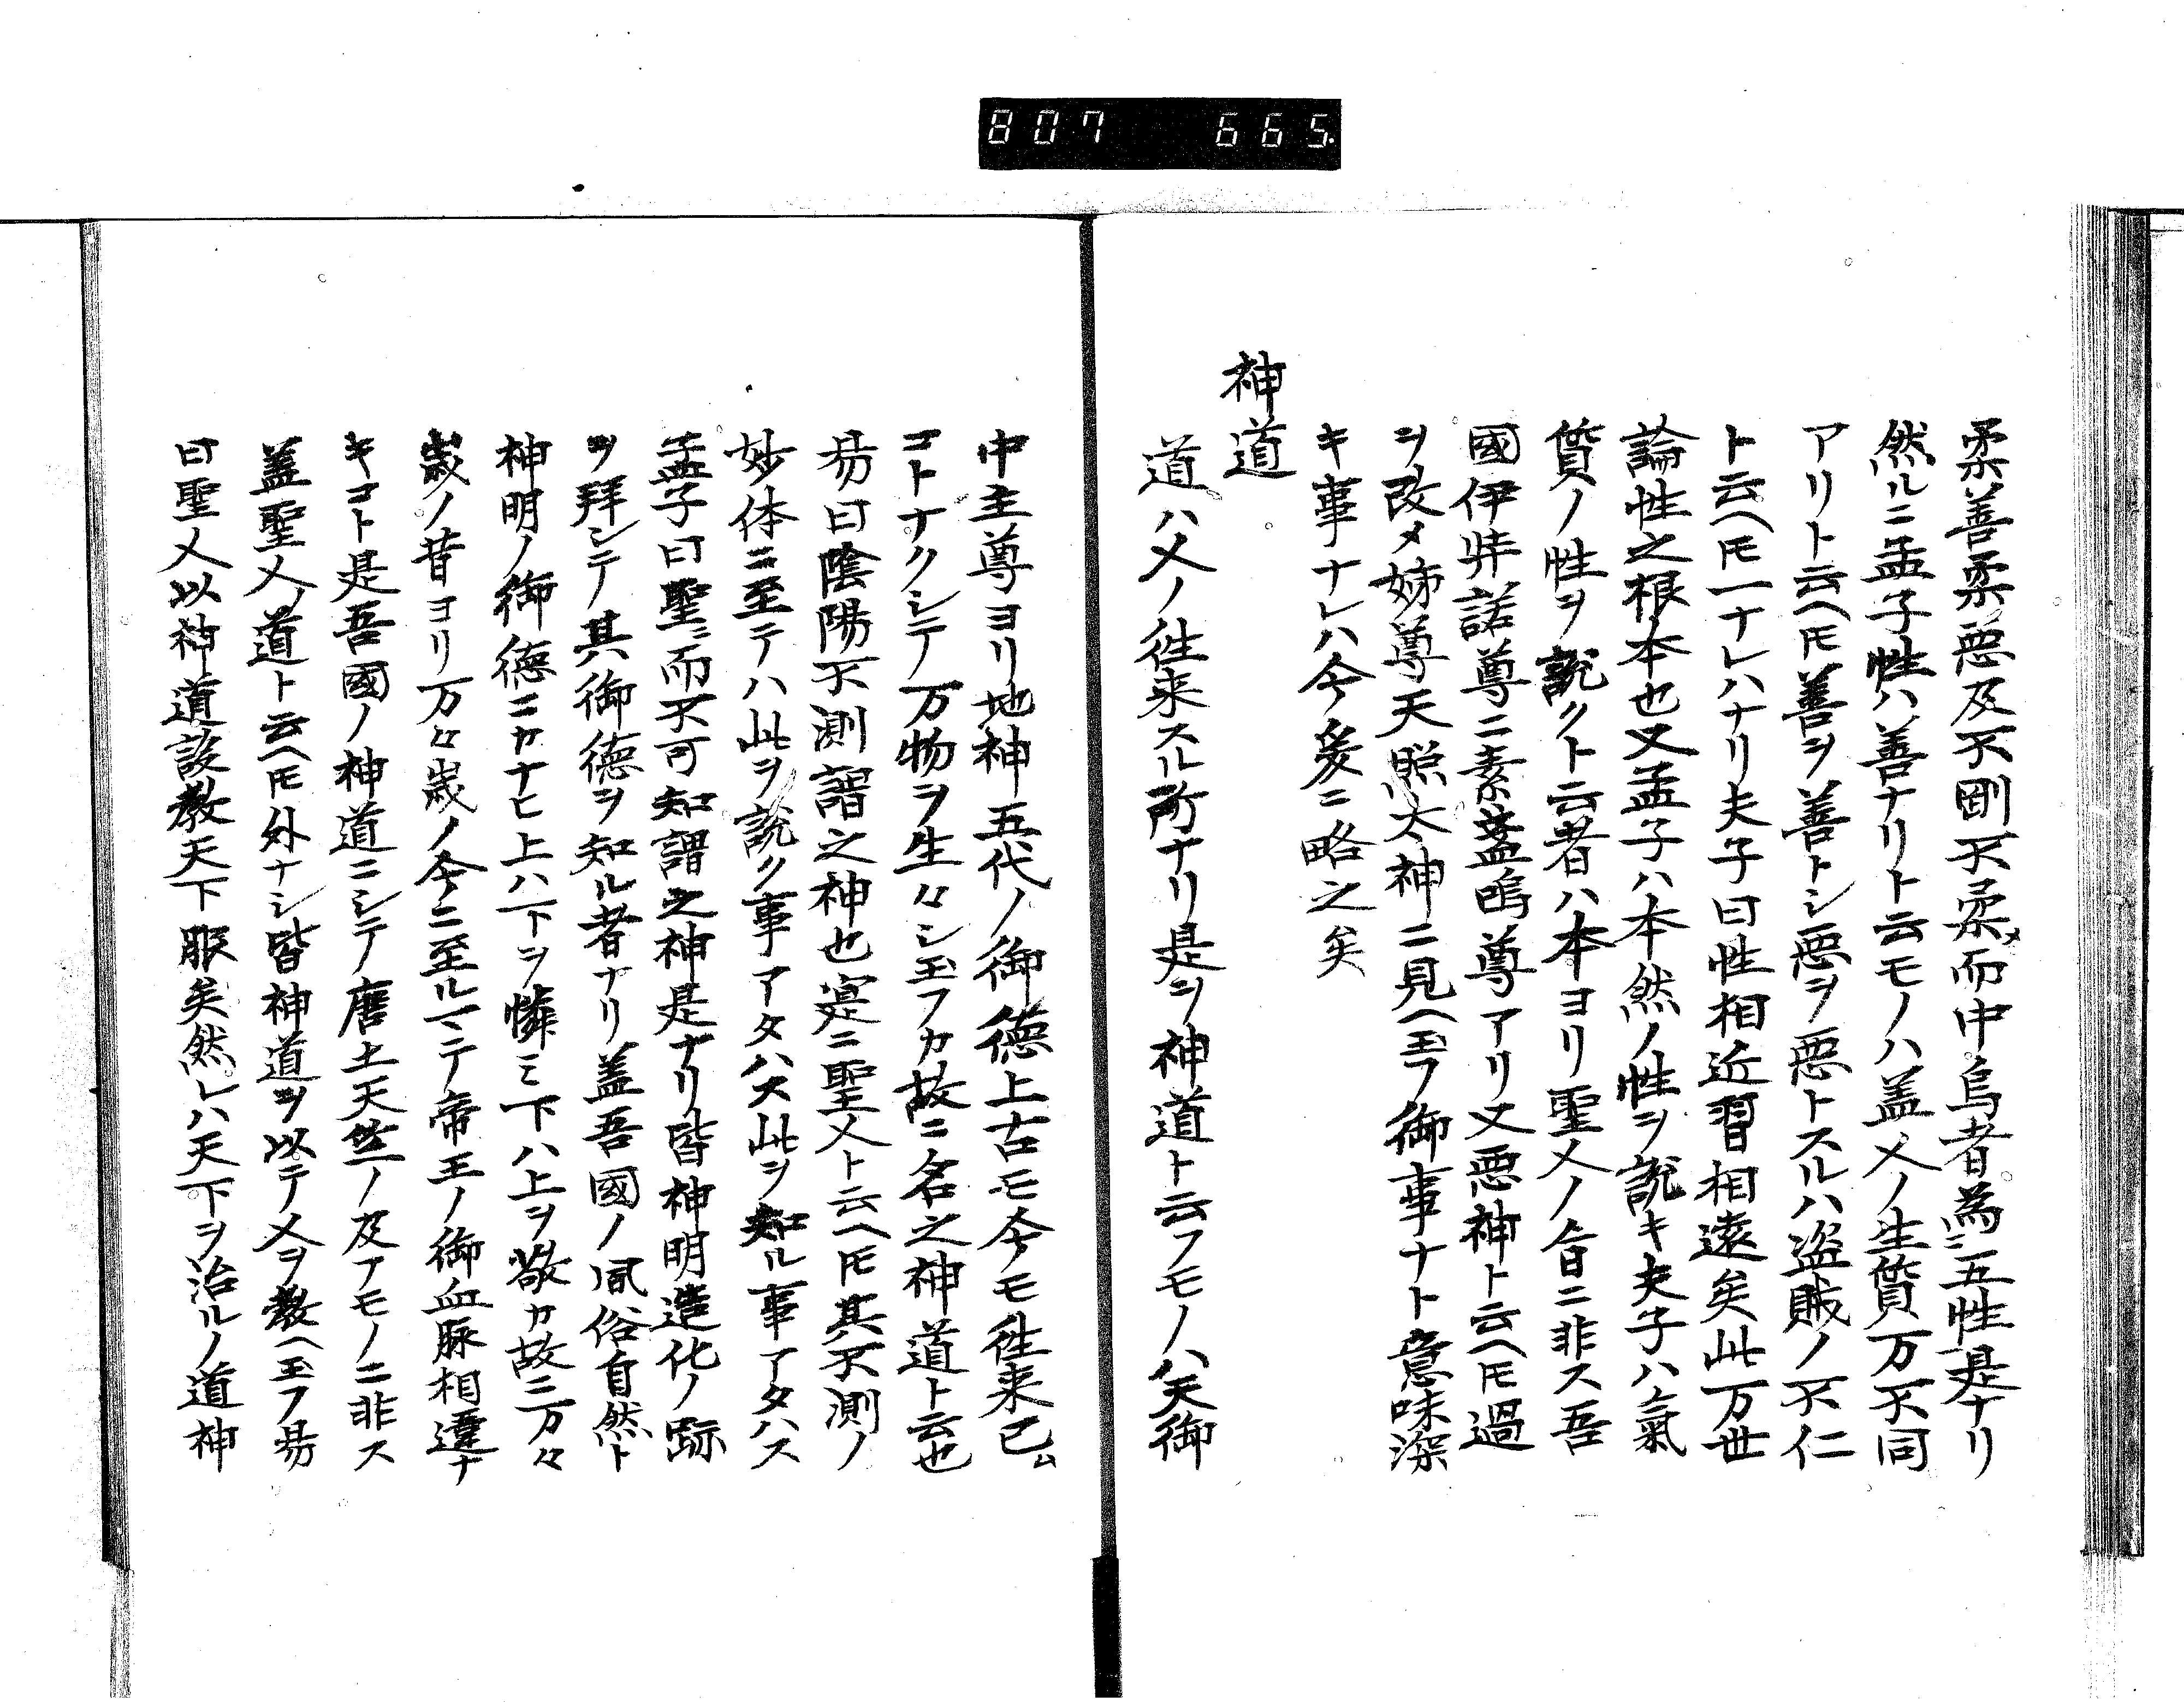 807 665
柔善柔悪及不剛不柔而中烏者為五性是ナリ
然ルニ孟子性ハ善ナリト云モノハ盖人ノ生質万不同
アリト云ヘ𪜈善ヲ善トシ悪ヲ悪トスルハ盗賊ノ不仁
ト云ヘ𪜈一ナレハナリ夫子曰性相近習相遠矣此万世
論性之根本也又孟子ハ本然ノ性ヲ説キ夫子ハ氣
質ノ性ヲ説クト云者ハ本ヨリ聖人ノ旨ニ非ス吾
國伊弉諾尊ニ素盞嗚尊アリ又悪神ト云ヘ𪜈過
ヲ改メ姉尊天照太神ニ見ヘ玉フ御事ナト意味深
キ事ナレハ今爰ニ略之矣
神道
道ハ人ノ往来スル所ナリ是ヲ神道ト云フモノハ天御
中主尊ヨリ地神五代ノ御徳上古モ今モ往来已ム
コトナクシテ万物ヲ生々シ玉フカ故ニ名之神道ト云也
易曰陰陽不測謂之神也寔ニ聖人ト云ヘ𪜈其不測ノ
妙体ニ至テハ此ヲ説ク事アタハス此ヲ知ル事アタハス
孟子曰聖ニ而不可知謂之神是ナリ皆神明造化ノ跡
ヲ拜シテ其御徳ヲ知ル者ナリ盖吾國ノ風俗自然ト
神明ノ御徳ニカナヒ上ハ下ヲ憐ミ下ハ上ヲ敬カ故ニ万々
歳ノ昔ヨリ万々歳ノ今ニ至ルマテ帝王ノ御血脉相違ナ
キコト是吾國ノ神道ニシテ唐土天竺ノ及フモノニ非ス
盖聖人ノ道ト云ヘ𪜈外ナシ皆神道ヲ以テ人ヲ教ヘ玉フ易
曰聖人以神道設教天下服矣然レハ天下ヲ治ルノ道神